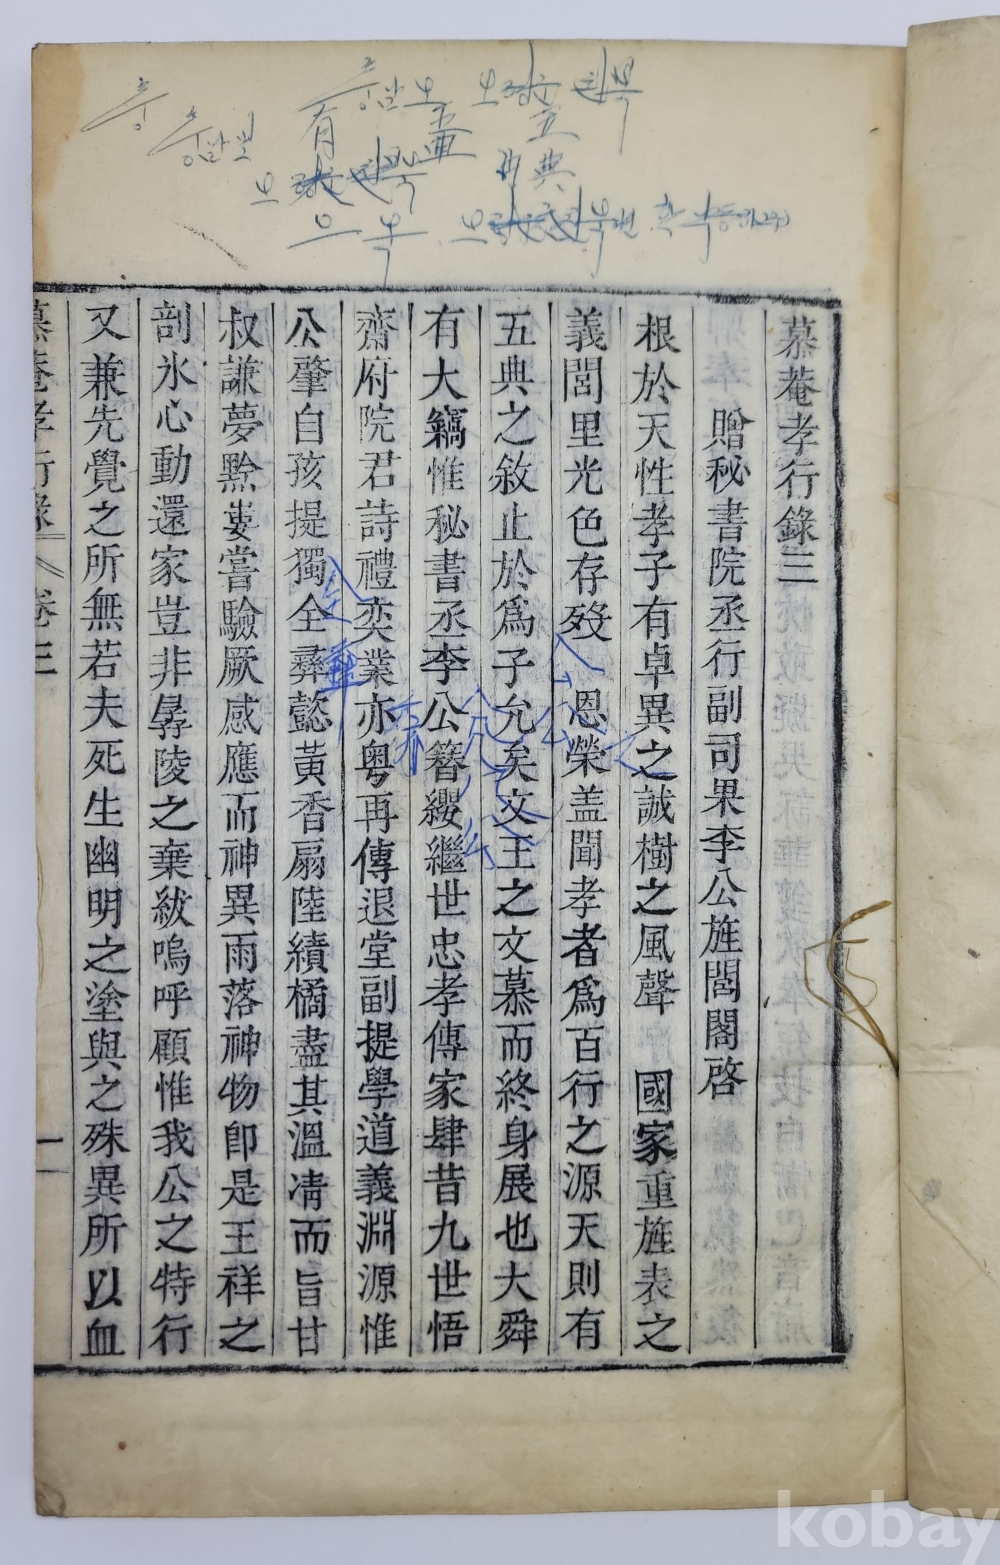 慕菴孝行錄三
贈秘書院丞行副司果李公旌閭閣啓
根於天性孝子有卓異之誠樹之風聲 國家重旌表之
義閭里光色存歿 恩榮盖聞孝者爲百行之源天則有
五典之敘止於爲子允矣文王之文慕而終身展也大舜
有大竊惟秘書丞李公簪纓繼世忠孝傳家肆昔九世悟
齋府院君詩禮奕業亦粤再傳退堂副提學道義淵源惟
公肇自孩提獨全彛懿黃香扇陸績橘盡其溫凊而旨甘
叔謙夢黔婁嘗驗厥感應而神異雨落神物卽是王祥之
剖氷心動還家豈非孱陵之棄紱嗚呼顧惟我公之特行
又兼先覺之所無若夫死生幽明之塗與之殊異所以血
慕菴孝行錄 卷三 一
有
典
kobay